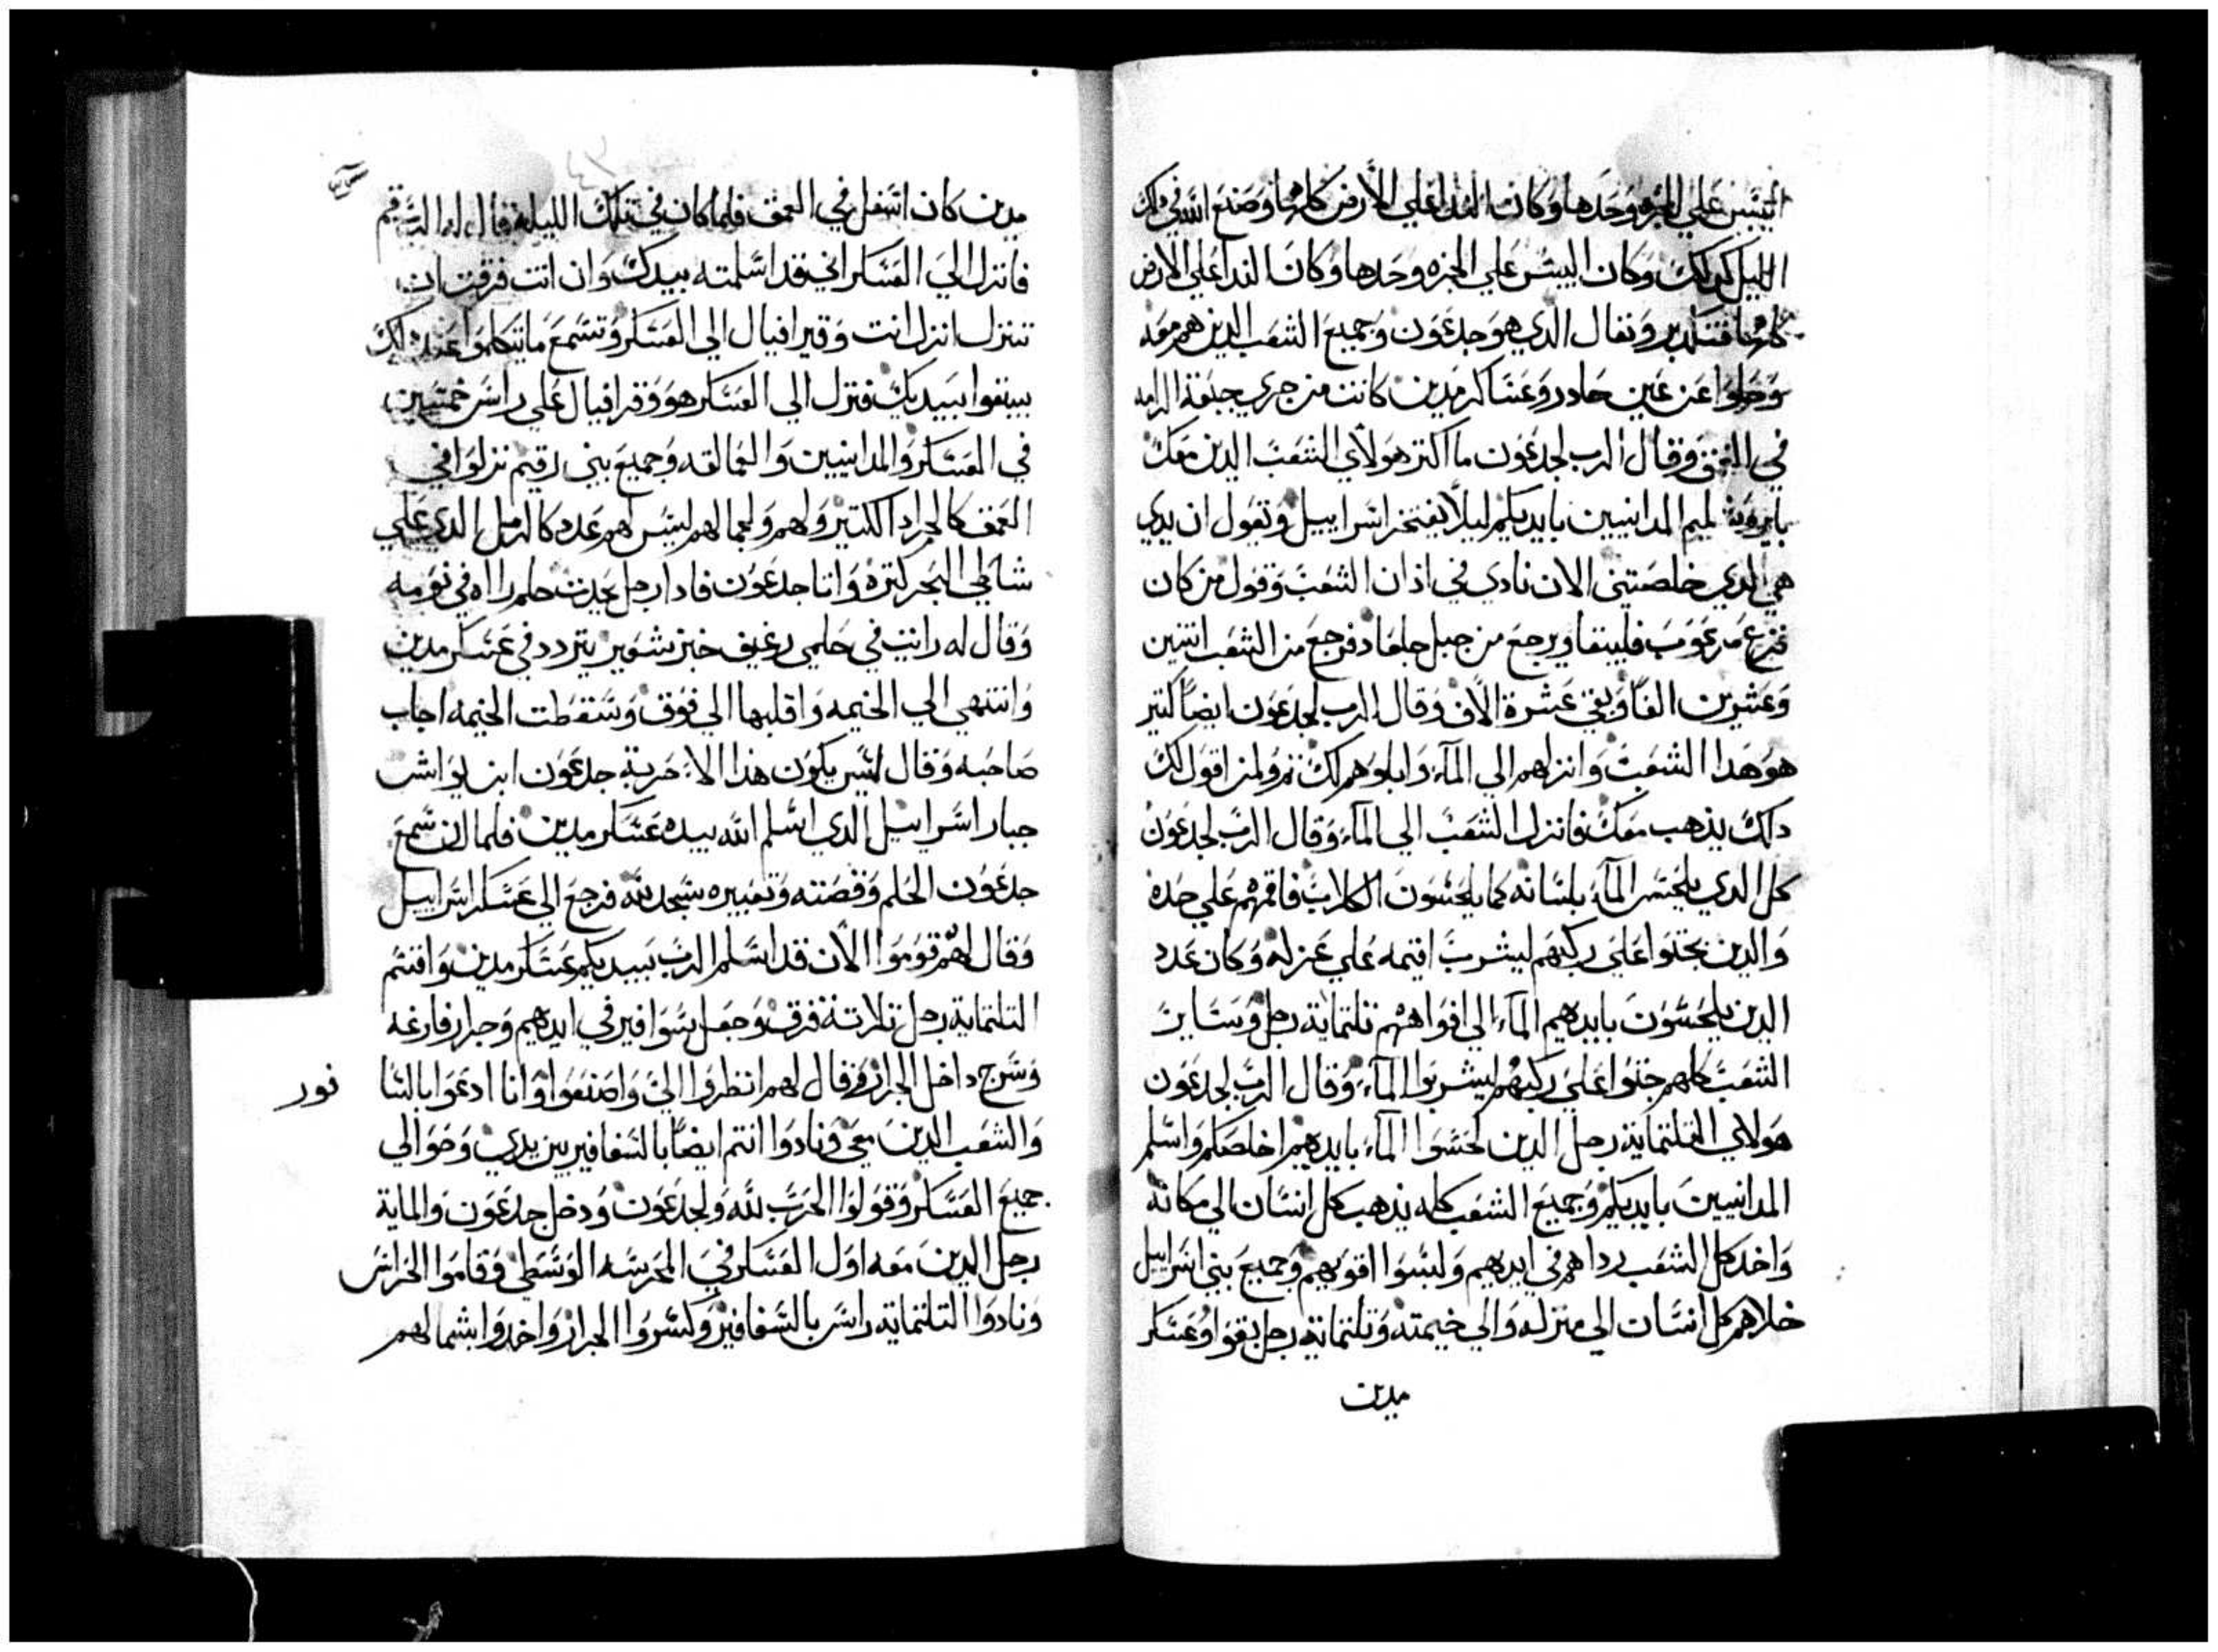 اليبس علي الجزه وحدها وكان الندا علي الأرض كلها وصنع الله في ذلك
الليل كذلك وكان اليبس علي الجزه وحدها وكان الندا علي الارض
كلها فتبكر ونفال الذي هو جدعون وجميع الشعب الذين هم معه
وحلوا عن عين حادر وعساكر مدين كانت من جري جبعة الرامه
في العمق وقال الرب لجدعون ما اكتر هولاي الشعب الذين معك
المدانيين بايديكم ليلا يفتخر اسراييل وتقول ان يدي
هي الدي خلصتني الان نادي في اذان الشعب وقول من كان
فزع مرعوب فليبقا ويرجع من جبل جلعاد فرجع من الشعب اتنين
وعشرين الفا وبقي عشرة الاف وقال الرب لجدعون ايضا كتير
هو هدا الشعب وانزلهم الي المآء وابلوهم لك تم ولمن اقول لك
دلك يذهب معك فانزل الشعب الي المآء وقال الرب لجدعون
كل الدي يلحس المآء بلسانه كما يلحسون الكلاب فاقمهم علي حده
والدين بجتوا علي ركبهم ليشرب اقيمه علي عزله وكان عدد
الدين يلحسون بايديهم المآء الي افواههم تلتماية رجل وساير
الشعب كلهم جتوا علي ركبهم ليشربوا المآء وقال الرب لجدعون
هولاي التلتماية رجل الدين لحسوا المآء بايديهم اخلصكم واسلم
المدانيين بايديكم وجميع الشعب كله يذهب كل انسان الي مكانه
واخد كل الشعب زداهم في ايديهم ولبسوا اقويهم وجميع بني اسراييل
خلاهم كل انسان الي منزله والي خيمته وتلتماية رجل بقوا وعسكر
مدين
مدين كان اسفل في العمق فلما كان في تلك الليلة قال له الرب قم
فانزل الي العسكر اني قد اسلمته بيدك وان انت فرقت ان
تنزل انزل انت وقرافيال الي العسكر وتسمع ما يتكلموا عند دلك
بيبقوا بيديك فنزل الي العسكر هو وقرافيال علي راس خمسين
في العسكر والمدانيين والعمالقه وجميع بني رقيم نزلوا في
العمق كالجراد الكتير ولهم ولجمالهم ليس لهم عدد كالرمل الدي علي
شاطي البحر لكتره واتا جدعون فادا رجل يحدث حلم راه في نومه
وقال له رايت في حلمي رغيف خبز شعير يتردد في عسكر مدين
وانتهي الي الخيمه واقلبها الي فوق وسقطت الخيمه اجاب
صاحبه وقال ليس يكون هذا الا حربة جدعون ابن يواش
جبار اسراييل الدي اسلم الله بيده عسكر مدين فلما ان سمع
جدعون الحلم وقصته وتعبيره سجد لله فرجع الي عسكر اسراييل
وقال لهم قوموا الأن قد اسلم الرب بيديكم عسكر مدين واقسم
التلتماية رجل تلاتة فرق وجعل سوافير في ايديهم وجرار فارغه
وسرج داخل الجرار وقال لهم انظروا الي واصنعوا وانا ادعوا بالسا
فور
والشعب الدين معي ونادوا انتم ايضا بالسفافير بين يدي وحوالي
جميع العسكر وقولوا الحرب لله ولجدعون ودخل جدعون والماية
رجل الدين معه اول العسكر في المحرسه الوسطي وقاموا الحراس
ونادوا التلتماية راس بالسفافير وكسروا الجرار واخدوا بشمالهم